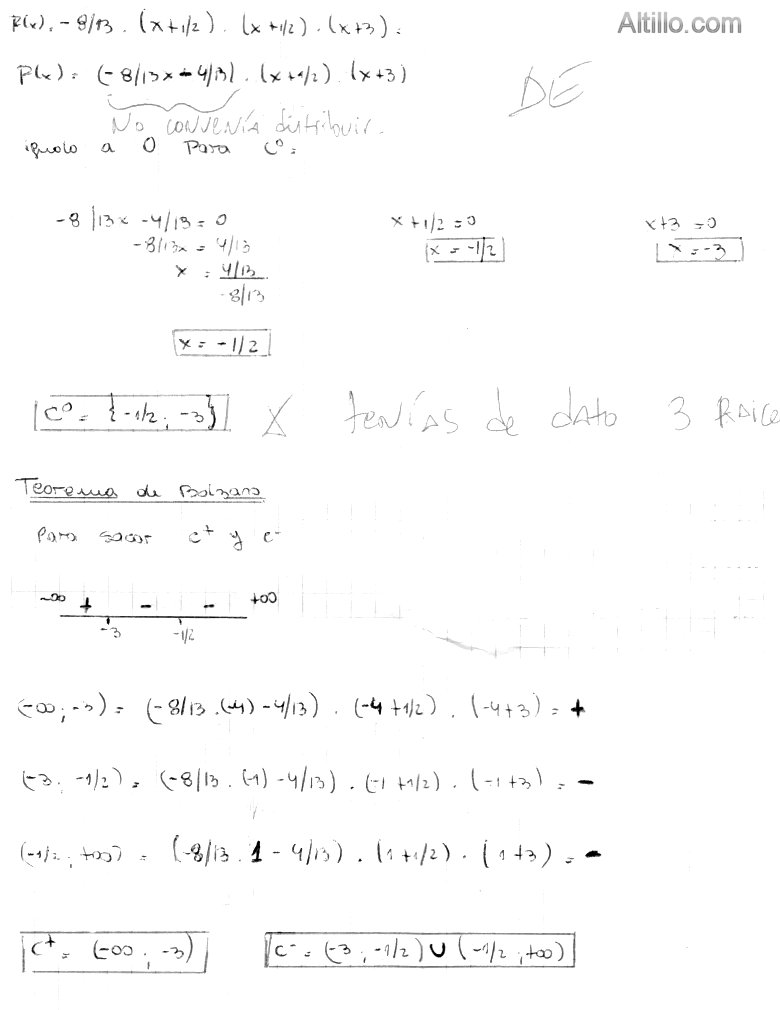 P(x) = -8/13 . (x+1/2) . (x+1/2) . (x+3) =
Altillo.com
P(x) = (-8/13x - 4/13) . (x+1/2) . (x+3)
DE
No CONVENÍA distribuir.
igualo a 0 Para C⁰ =
-8/13x - 4/13 = 0
x+1/2 = 0
x+3 = 0
-8/13x = 4/13
x = -1/2
x = -3
x = 4/13
-8/13
x = -1/2
C⁰ = {-1/2 ; -3}
tenÍAS de DATO 3 RAICE
Teorema de Bolzano
Para sacar C⁺ y C⁻
-∞ + - - +∞
-3 -1/2
(-∞ ; -3) = (-8/13 . (-4) - 4/13) . (-4 + 1/2) . (-4+3) = +
(-3 ; -1/2) = (-8/13 . (-1) - 4/13) . (-1 + 1/2) . (-1+3) = -
(-1/2 ; +∞) = (-8/13 . 1 - 4/13) . (1 + 1/2) . (1+3) = -
C⁺ = (-∞ ; -3)
C⁻ = (-3 ; -1/2) U (-1/2 ; +∞)